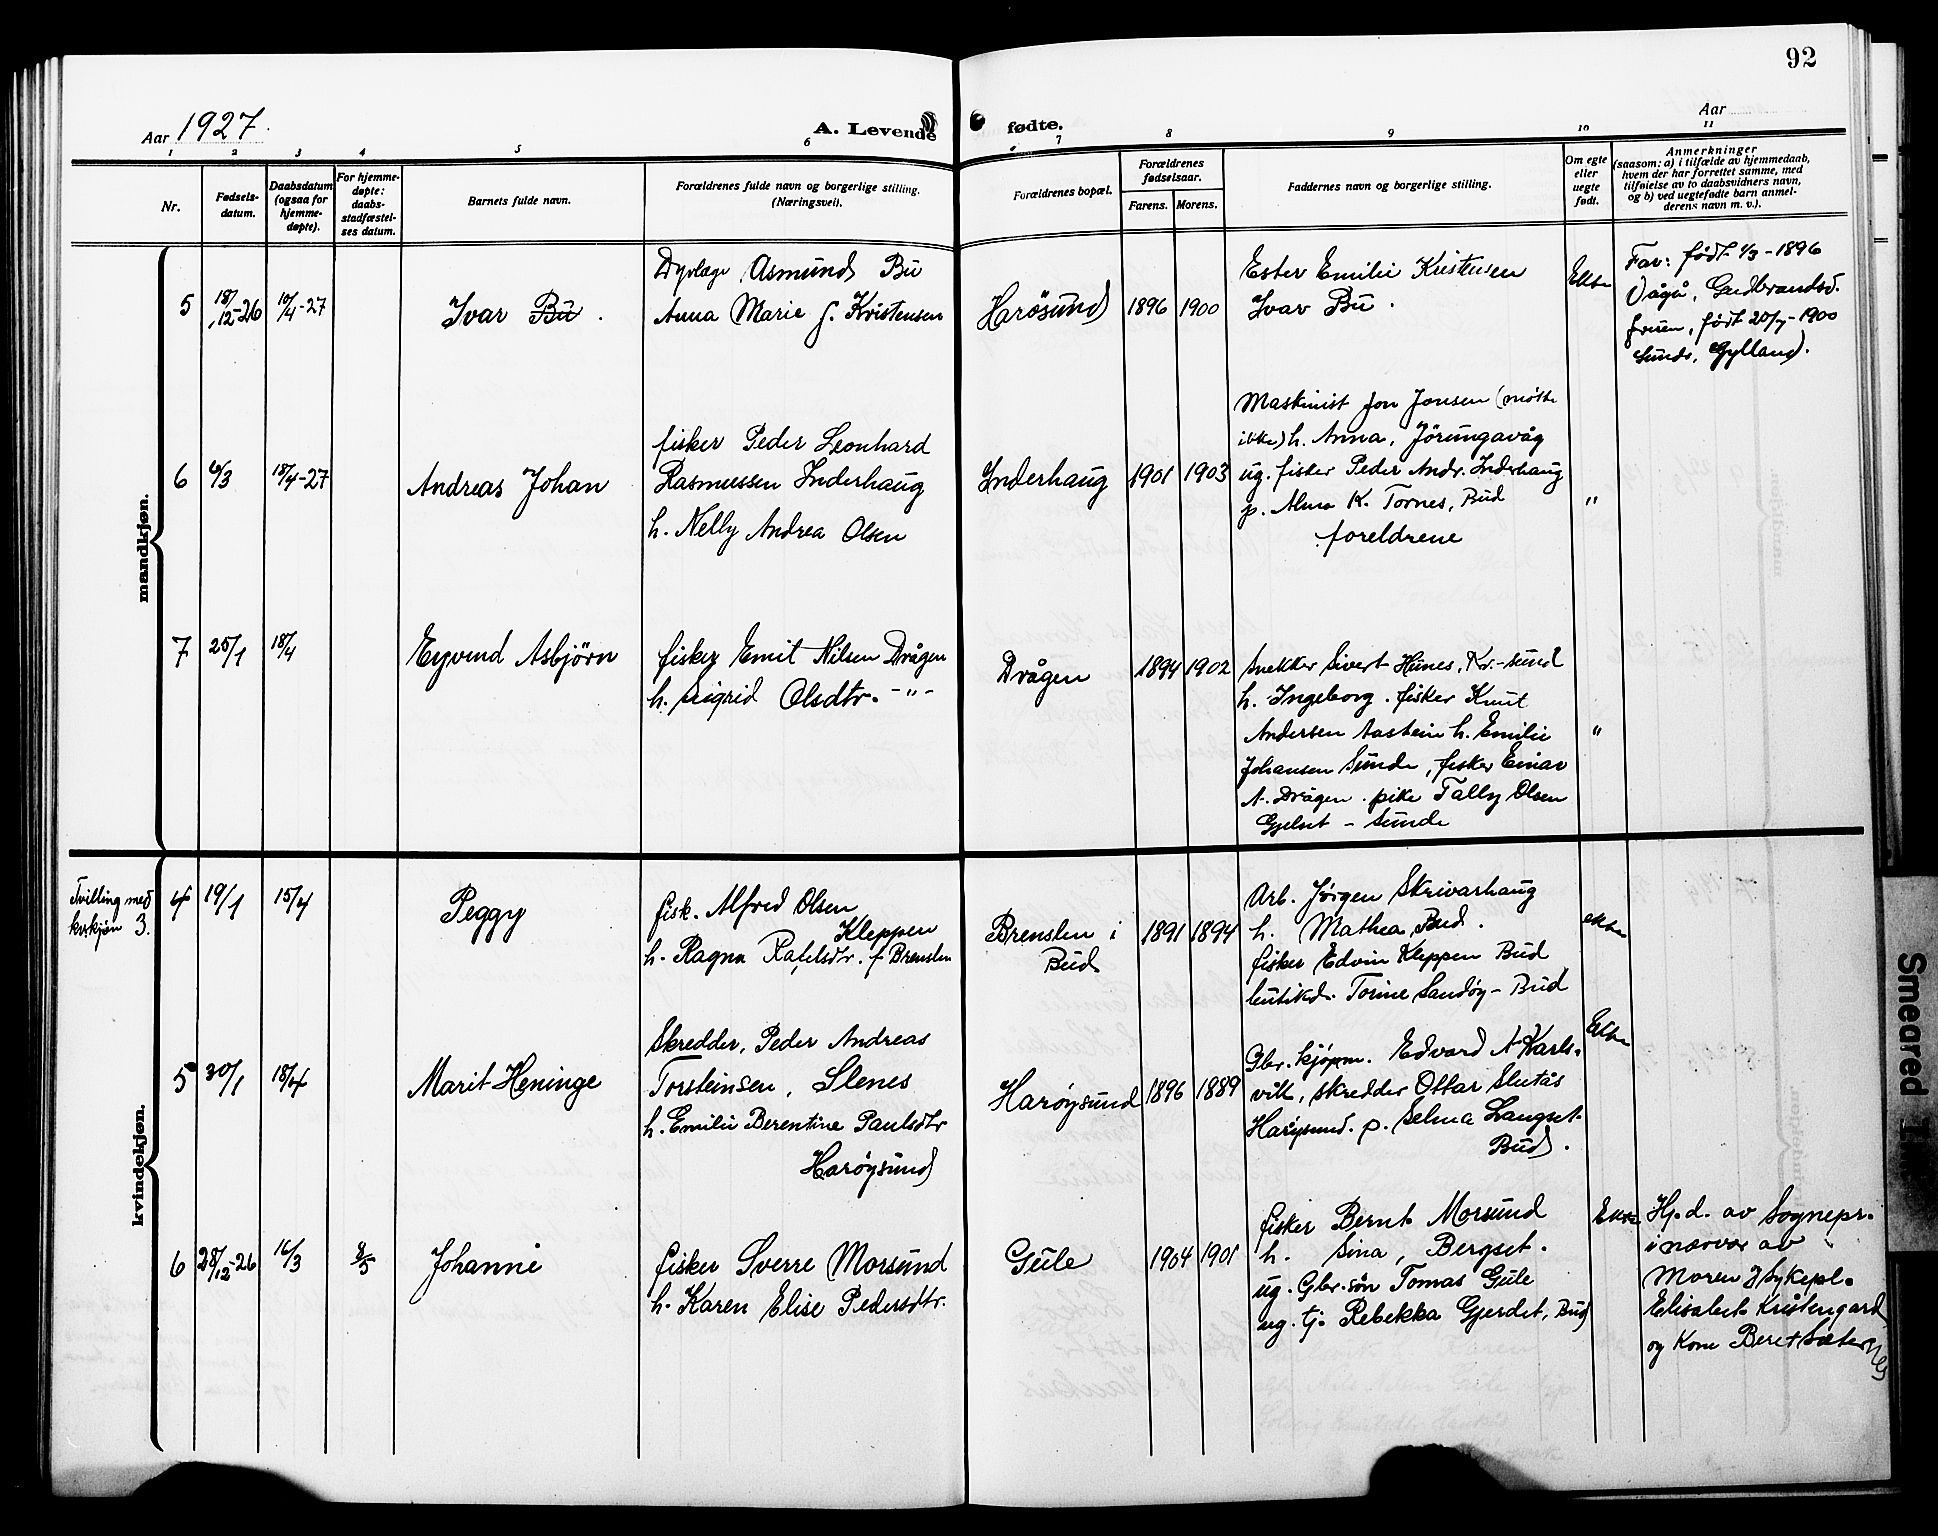 92
Aar 1927.
A. Levende fødte.
Aar
1 2 3 4 5 6 7 8 9 10 11
Nr.
Fødsels-
datum.
Daabsdatum
(ogsaa for
hjemme-
døpte).
For hjemme-
døpte:
daabs-
stadfæstel-
ses datum.
Barnets fulde navn.
Forældrenes fulde navn og borgerlige stilling.
(Næringsvei).
Forældrenes bopæl.
Forældrenes
fødselsaar.
Farens. Morens.
Faddernes navn og borgerlige stilling.
Om egte
eller
uegte
født.
Anmerkninger
(saasom: a) i tilfælde av hjemmedaab,
hvem der har forrettet samme, med
tilføielse av to daabsvidners navn,
og b) ved uegtefødte barn anmel-
derens navn m. v.).
mandkjøn.
5
18/12-26
10/4-27
Ivar Bu.
Dyrlæge Asmund Bu
Anna Marie f. Kristensen
Harösund
1896 1900
Ester Emilie Kristensen
Ivar Bu.
Ekte
Far: født 1/3-1896
Vågå, Gudbrandsd.
fruen, født 20/7-1900
Sunds, Gylland.
6
6/3
18/4-27
Andreas Johan
fisker Peder Leonhard
Rasmussen Inderhaug
h. Nelly Andrea Olsen
Inderhaug
1901 1903
Maskinist Jon Jonsen (møtte
ikke) h. Anna, Jörungavåg
ug. fisker Peder Andr. Inderhaug
p. Alma K. Tornes, Bud
foreldrene
"
7
25/1
18/4
Eyvind Asbjörn
fisker Emil Nilsen Drågen
h. Sigrid Olsdtr. -"-
Drågen
1894 1902
Snekker Sivert Hunes, Kr.-sund
h. Ingeborg. fisker Knut
Andersen Aastein h. Emilie
Johansen Sunde, fisker Einar
N. Drågen. pike Tally Olsen
Gjelset - Sunde
"
kvindekjøn.
Tvilling med
kv.kjön 3.
4
19/1
15/4
Peggy
fisk. Alfred Olsen
Kleppen
h. Ragna Rafelsdtr. f Brenslen
Brenslen i
Bud
1891 1894
Arb. Jörgen Skrivarhaug
h. Mathea Bud.
fisker Edvin Kleppen Bud
butikd. Torine Sandöy - Bud
ekte
5
30/1
18/4
Marit Heninge
Skredder, Peder Andreas
Torsteinsen, Slenes
h. Emilie Berentine Paulsdtr
Haröysund
Haröysund
1896 1889
Gbr. kjöpm. Edvard A Karls-
vik, skredder Ottar Slutås
Haröysund. p. Selma Langset
Bud.
Ekte
6
28/12-26
16/3
8/5
Johanne
fisker Sverre Morsund
h. Karen Elise Pedersdtr.
Gule
1904 1901
fisker Bernt Morsund
h. Sina, Bergset.
ug. Gbr.sön Tomas Gule
ug. tj. Rebekka Gjerdet, Bud
Ekte
Hj.d. av Sognepr.
i nærvær av
Moren, Sykepl.
Elisabet Kristengard
og Kone Beret Sæternes
Smeared